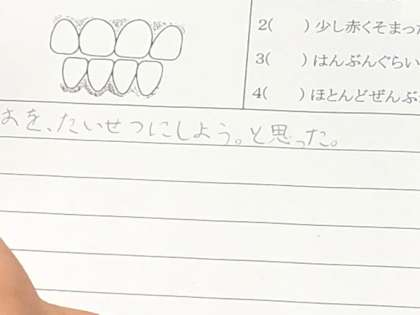 2( )少し赤くそまっ
3( )はんぶんぐらい
4( )ほとんどぜんぶ
を、たいせつにしよう。と思った。